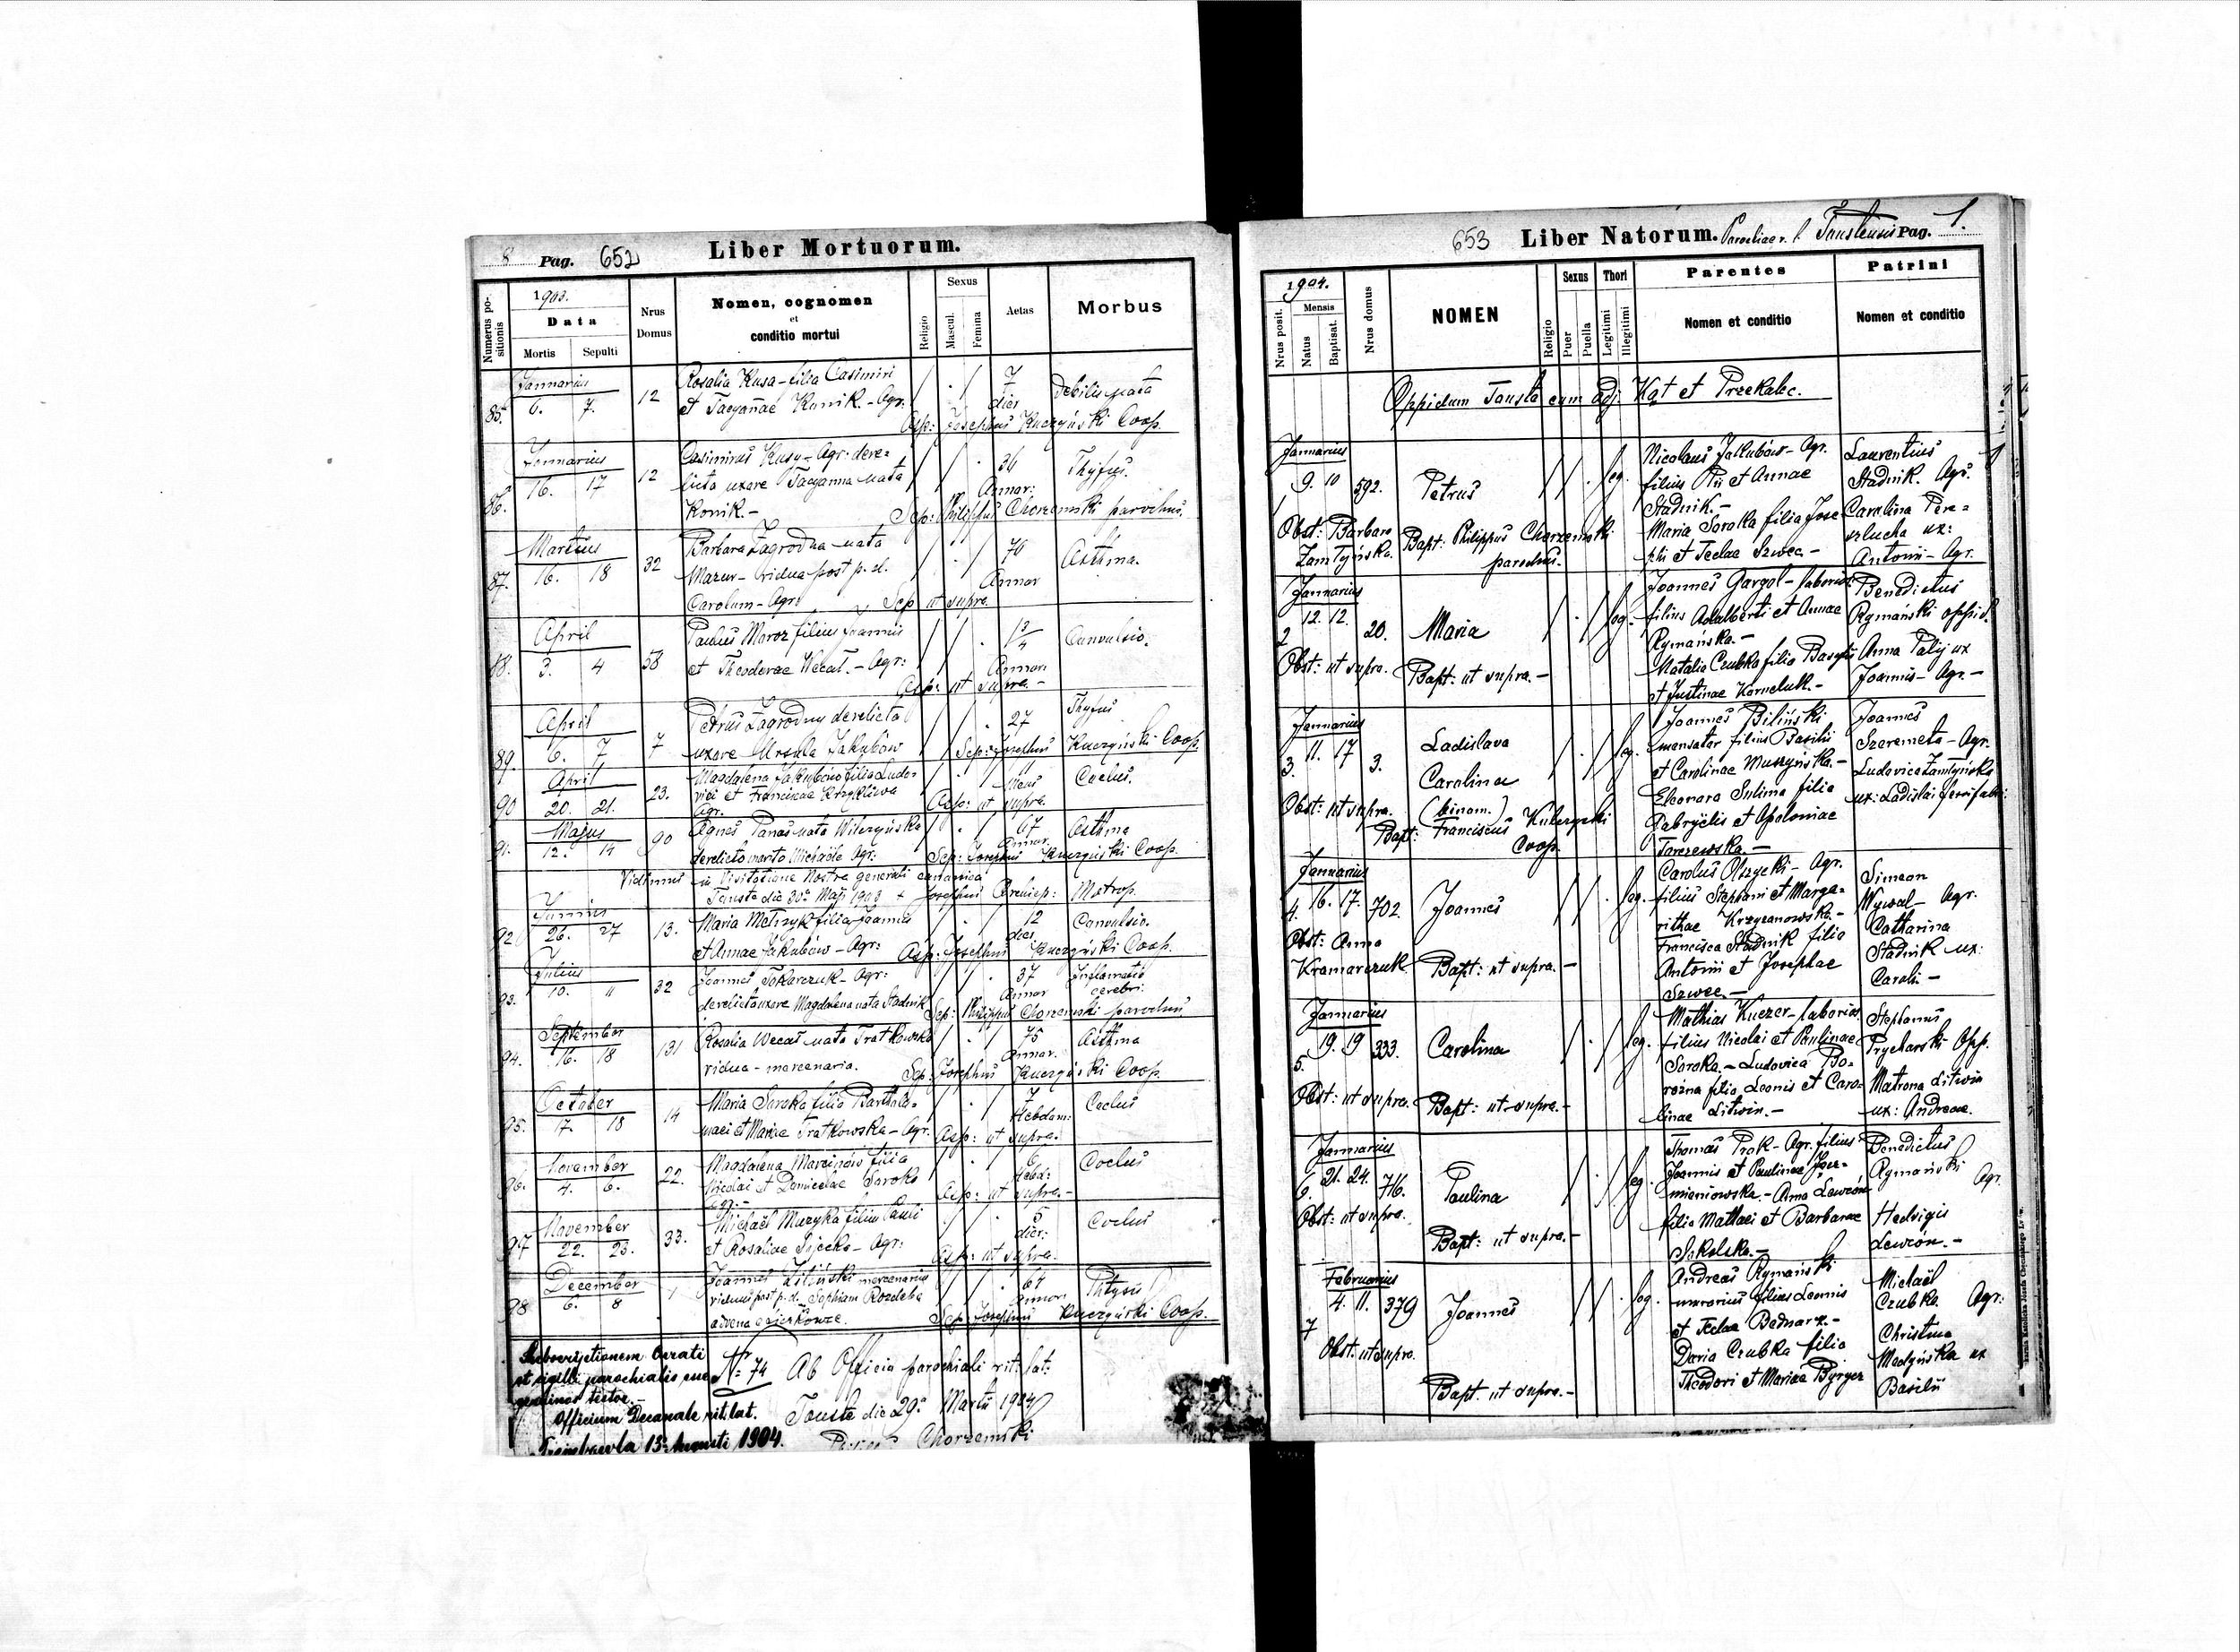 8 Pag. 652 Liber Mortuorum.
Numerus positionis
1903.
Data
Mortis Sepulti
Nrus Domus
Nomen, cognomen
et
conditio mortui
Religio
Sexus
Mascul. Femina
Aetas
Morbus
Januarius
85. 6. 7. 12 Rosalia Kusa - filia Casimiri 7 Debilis nata
et Tacyannae Konik. - Agr: dier
Asp: Josephus Kuczyński Coop.
Januarius
86. 16. 17 12 Casimirus Kusy - Agr. dere=
licta uxore Tacyanna nata 36 Thyfus.
Konik. - Annor:
Sep: Philippus Chorzemski parochus.
Martius
87. 16. 18 32 Barbara Zagrodna nata 70 Asthma.
Mazur - vidua post p. d. Annor
Carolum - Agr: Sep ut supra.
April
88. 3. 4 58 Paulus Moroz filius Joannis 1 3/4 Convulsio.
et Theodorae Wecal. - Agr: Annor:
Asp: ut supra. -
April
89. 6. 7 7 Petrus Zagrodny derelicta 27 Thyfus
uxore Ursula Jakubów Sep: Josephus Kuczyński Coop.
April
90 20. 21. 23. Magdalena Jakubów filia Ludo=
vici et Franciscae Krzykliwa Mens Coclus.
Agr. Asp: ut supra.
Majus
91. 12. 14 90 Agnes Panas nata Wilczyńska 67 Asthma
derelicto marito Michaële Agr: Annor.
Sep: Josephus Kuczyński Coop.
Vidimus in Visitatione Nostra generali canonica
Touste die 30a Maji 1903 + Josephus Archiep: Metrop.
Junius
92 26. 27 13. Maria Metrzyk filia Joannis 12 Convulsio.
et Annae Jakubów - Agr: dies
Asp: Josephus Kuczyński Coop.
Julius
93. 10. 11 32 Joannes Tokarczuk - Agr: 37 Inflamatio
derelicta uxore Magdalena nata Stadnik Annor cerebri.
Sep: Philippus Chorzemski parochus
September
94. 16. 18 131 Rosalia Wecal nata Tratkowska 75 Asthma
vidua - mercenaria. Annor.
Sep: Josephus Kuczyński Coop.
October
95. 17. 18 14 Maria Soroka filia Bartholo= 7 Coclus
maei et Mariae Tratkowska - Agr. Hebdom:
Asp: ut supra.
November
96. 4. 6. 22. Magdalena Marcinów filia 6 Coclus
Nicolai et Domicelae Soroka Hebd:
Agr: Asp: ut supra. -
November
97 22. 23. 33. Michaël Muzyka filius Pauli 5 Coclus
et Rosaliae Sijecka - Agr: dier:
Asp: ut supra.
December
98 6. 8 1 Joannes Ziliński mercenarius 64 Phtysis
viduus post p. d. Sophiam Rozdeba Annor
advena
Sep: Josephus Kuczyński Coop.
Subscriptionem Curati
et sigilli parochialis esse
genuinos testor. -
Officium Decanale rit. lat.
Trembowla 13a Augusti 1904.
Nr 74 Ab Officio parochiali rit. lat.
Touste die 29a Martii 1904
Chorzemski
653 Liber Natorum. Parochiae r. l. Toustensis Pag. 1.
Nrus posit.
1904.
Mensis
Natus Baptisat.
Nrus domus
NOMEN
Religio
Sexus
Puer Puella
Thori
Legitimi Illegitimi
Parentes
Nomen et conditio
Patrini
Nomen et conditio
Oppidum Touste cum adj. Kąt et Przekalec.
Januarius
1 9. 10 592. Petrus leg.
Nicolaus Jakubów - Agr.
filius Pii et Annae
Stadnik. -
Maria Soroka filia Jose
phi et Teclae Szwec -
Laurentius
Stadnik. Agr.
Carolina Pere=
szlucha ux:
Antonii - Agr.
Obst: Barbara Zamłyńska. Bapt: Philippus Chorzemski
parochus.
Januarius
2 12. 12. 20. Maria leg.
Joannes Gargol - laborios:
filius Adalberti et Annae
Rymańska. -
Natalia Czubka filia Basylii
et Justinae Korneluk. -
Benedictus
Rymański oppid.
Anna Palij ux
Joannis - Agr. -
Obst: ut supra. Bapt: ut supra. -
Januarius
3. 11. 17 3. Ladislava
Carolina
(binom.) leg.
Joannes Biliński
mensator filius Basilii
et Carolinae Muszyńska. -
Eleonora Sulima filia
Gabryëlis et Apoloniae
Tarczewska. -
Joannes
Szeremeta - Agr.
Ludovica Zamłyńska
ux: Ladislai ferrifabri:
Obst: ut supra. Bapt: Franciscus
Coop.
Januarius
4. 16. 17. 702. Joannes leg.
Carolus Olszycki - Agr.
filius Stephani et Marga=
rithae Krzyzanowska. -
Francisca Stadnik filia
Antonii et Josephae
Szwec. -
Simeon
Wywal - Agr.
Catharina
Stadnik ux:
Caroli -
Obst: Anna
Kramarczuk Bapt: ut supra. -
Januarius
5. 19. 19 333. Carolina leg.
Mathias Kuczer - laborios
filius Nicolai et Paulinae
Soroka. - Ludovica Bo=
rozna filia Leonis et Caro=
linae Litwin. -
Stephanus
Prycharski Opp.
Matrona Litwin
ux: Andreae.
Obst: ut supra. Bapt: ut supra. -
Januarius
6. 21. 24. 716. Paulina leg.
Thomas Prok - Agr. filius
Joannis et Paulinae Jace=
mieniowska. - Anna Lewcón
filia Mathaei et Barbarae
Sokolska. -
Benedictus
Rymański Agr.
Hedvigis
Lewcón. -
Obst: ut supra. Bapt: ut supra. -
Februarius
7 4. 11. 379 Joannes leg.
Andreas Rymański
murarius filius Leonis
et Teclae Bednarz. -
Daria Czubka filia
Theodori et Mariae Byrger
Michaël
Czubka. Agr:
Christina
Medyńska ux
Basilii
Obst: ut supra.
Bapt. ut supra. -